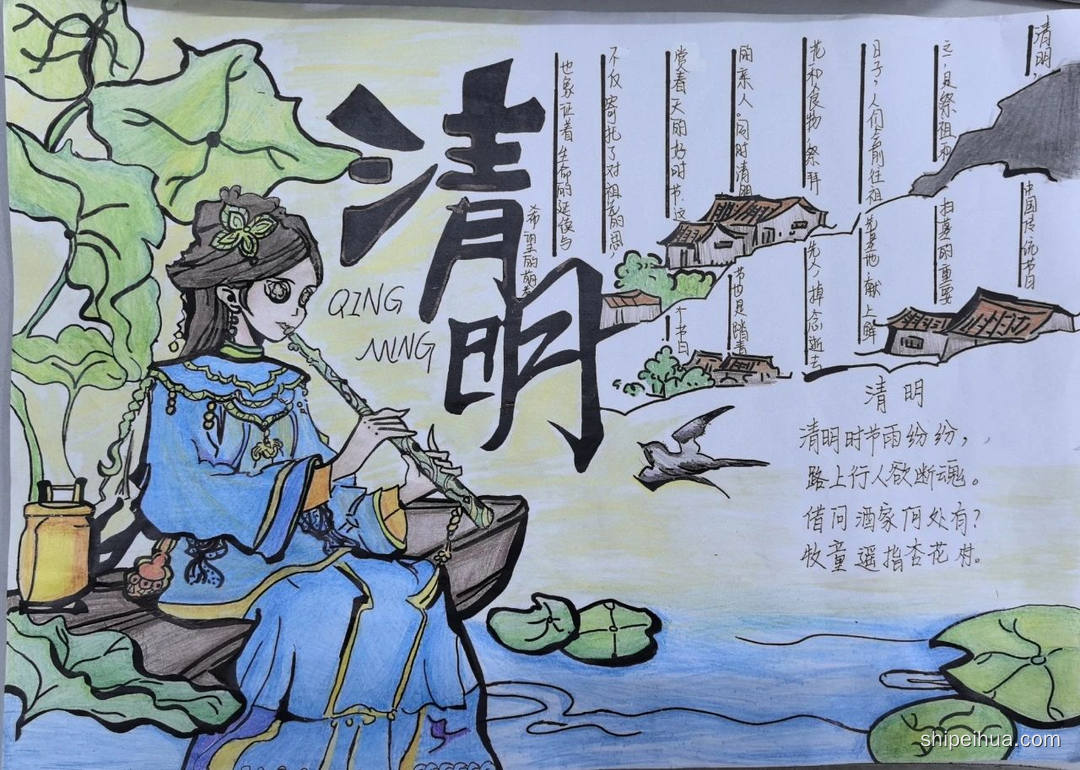 清明
QING
MING
清明,中国传统节日
之一,是祭祖和扫墓的重要
日子,人们会前往祖先墓地,献上鲜
花和食物,祭拜先人,悼念逝去
的亲人。同时清明节也是踏青
赏春天的好时节,这个节日
不仅寄托了对祖先的思,
也象征着生命的延续与
希望的萌
清明
清明时节雨纷纷,
路上行人欲断魂。
借问酒家何处有?
牧童遥指杏花村。
shipeihua.com